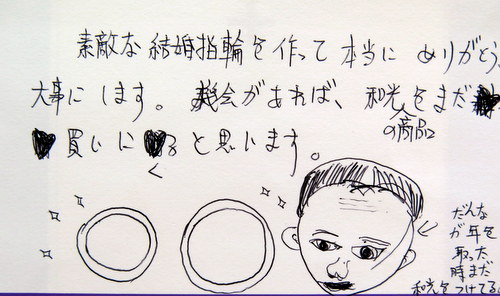 素敵な結婚指輪を作って本当にありがとう。
大事にします。機会があれば、和光をまだ
の商品
買いにくると思います。
だんな
が年を
取った
時まだ
和光をつけてる。